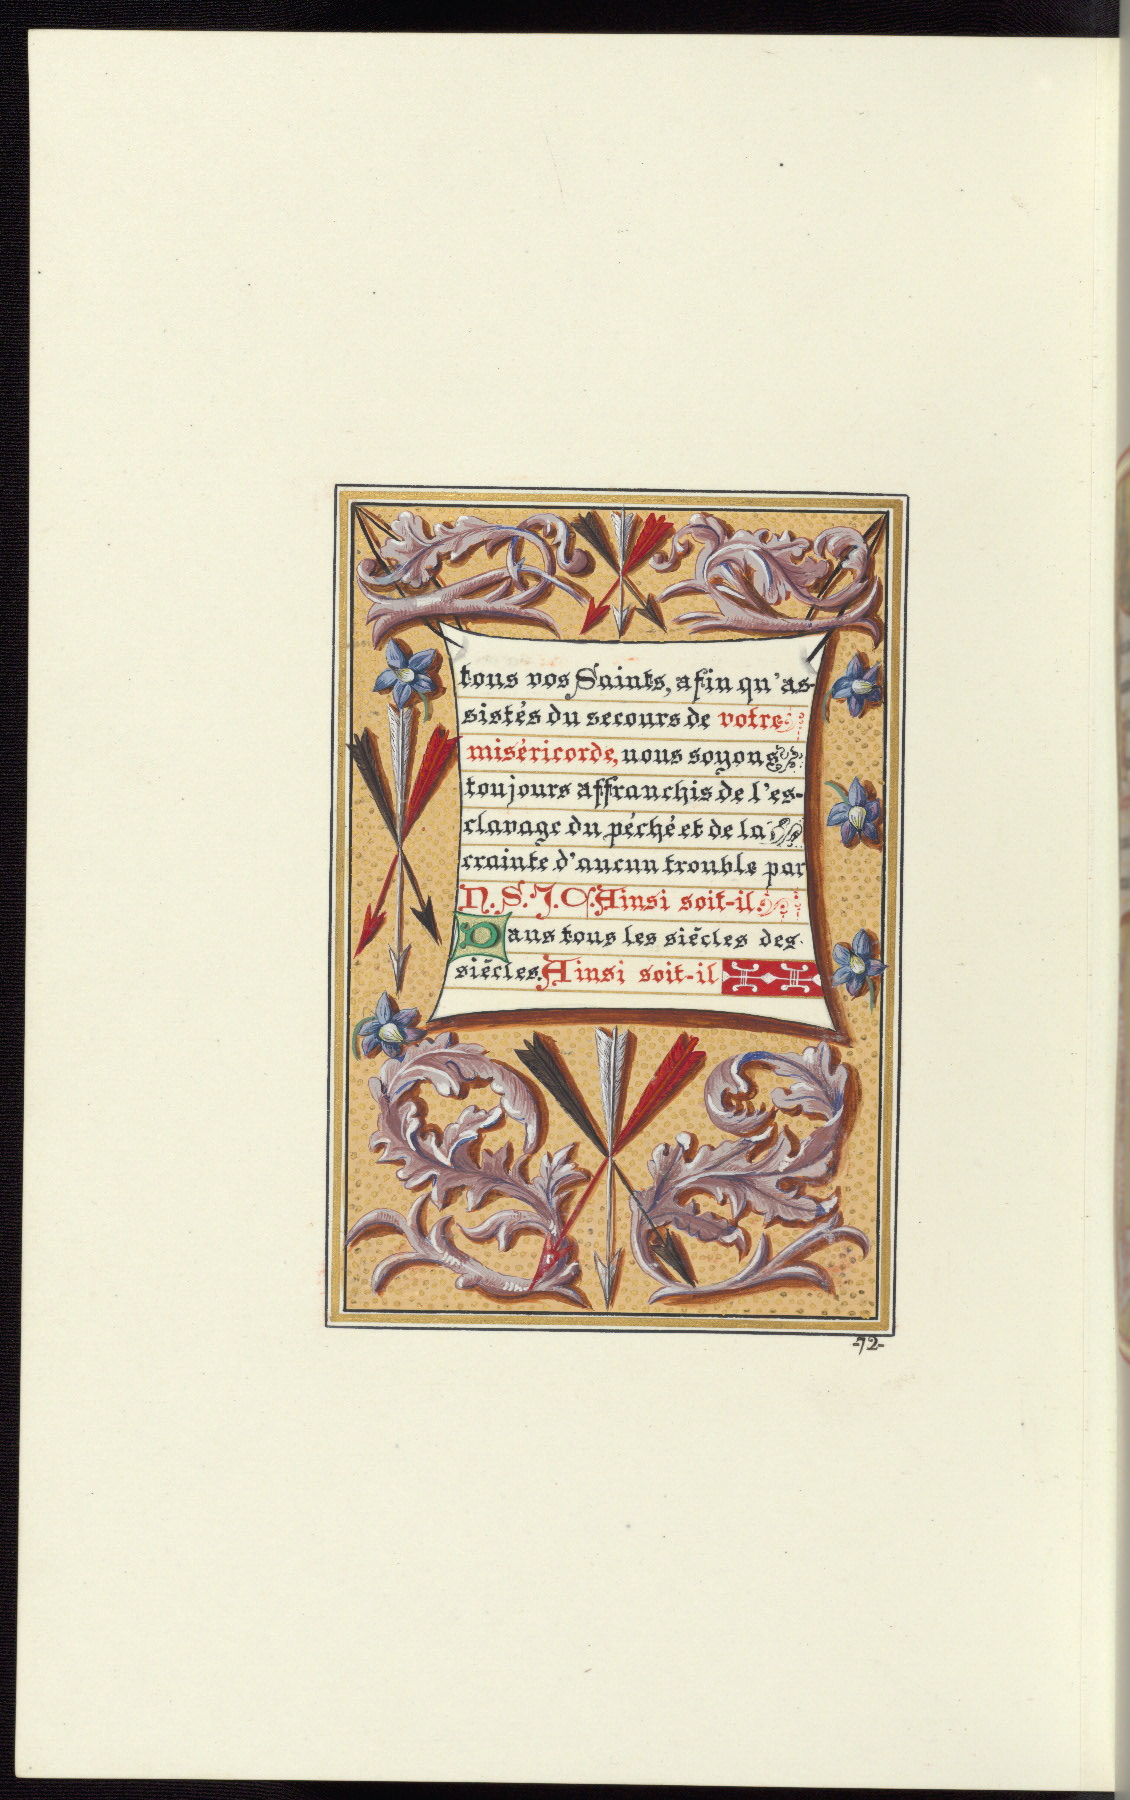 tous vos Saints, afin qu'as-
sistés du secours de votre
miséricorde, nous soyons
toujours affranchis de l'es-
clavage du péché et de la
crainte d'aucun trouble par
N. S. J. C. Ainsi soit-il.
Dans tous les siècles des
siècles. Ainsi soit-il
-72-